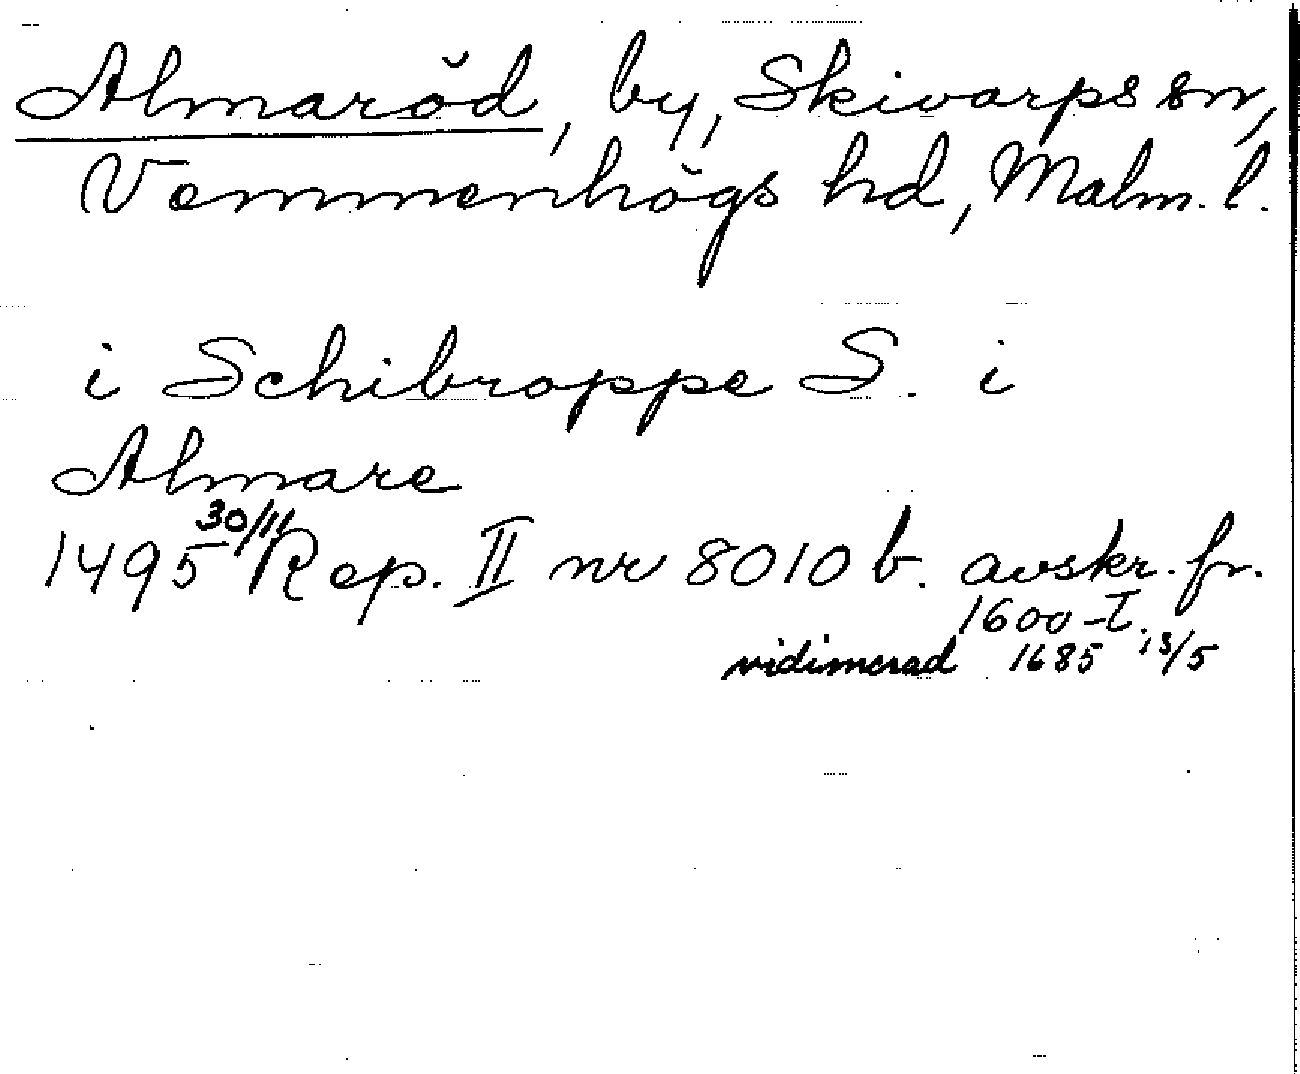 Almaröd, by, Skivarps sn,
Vemmenhögs hd, Malm. l.
i Schibroppe S. i
Almare
1495 30/11 Rep. II nr 8010 b. avskr. fr.
1600-T.
vidimerad 1685 13/5